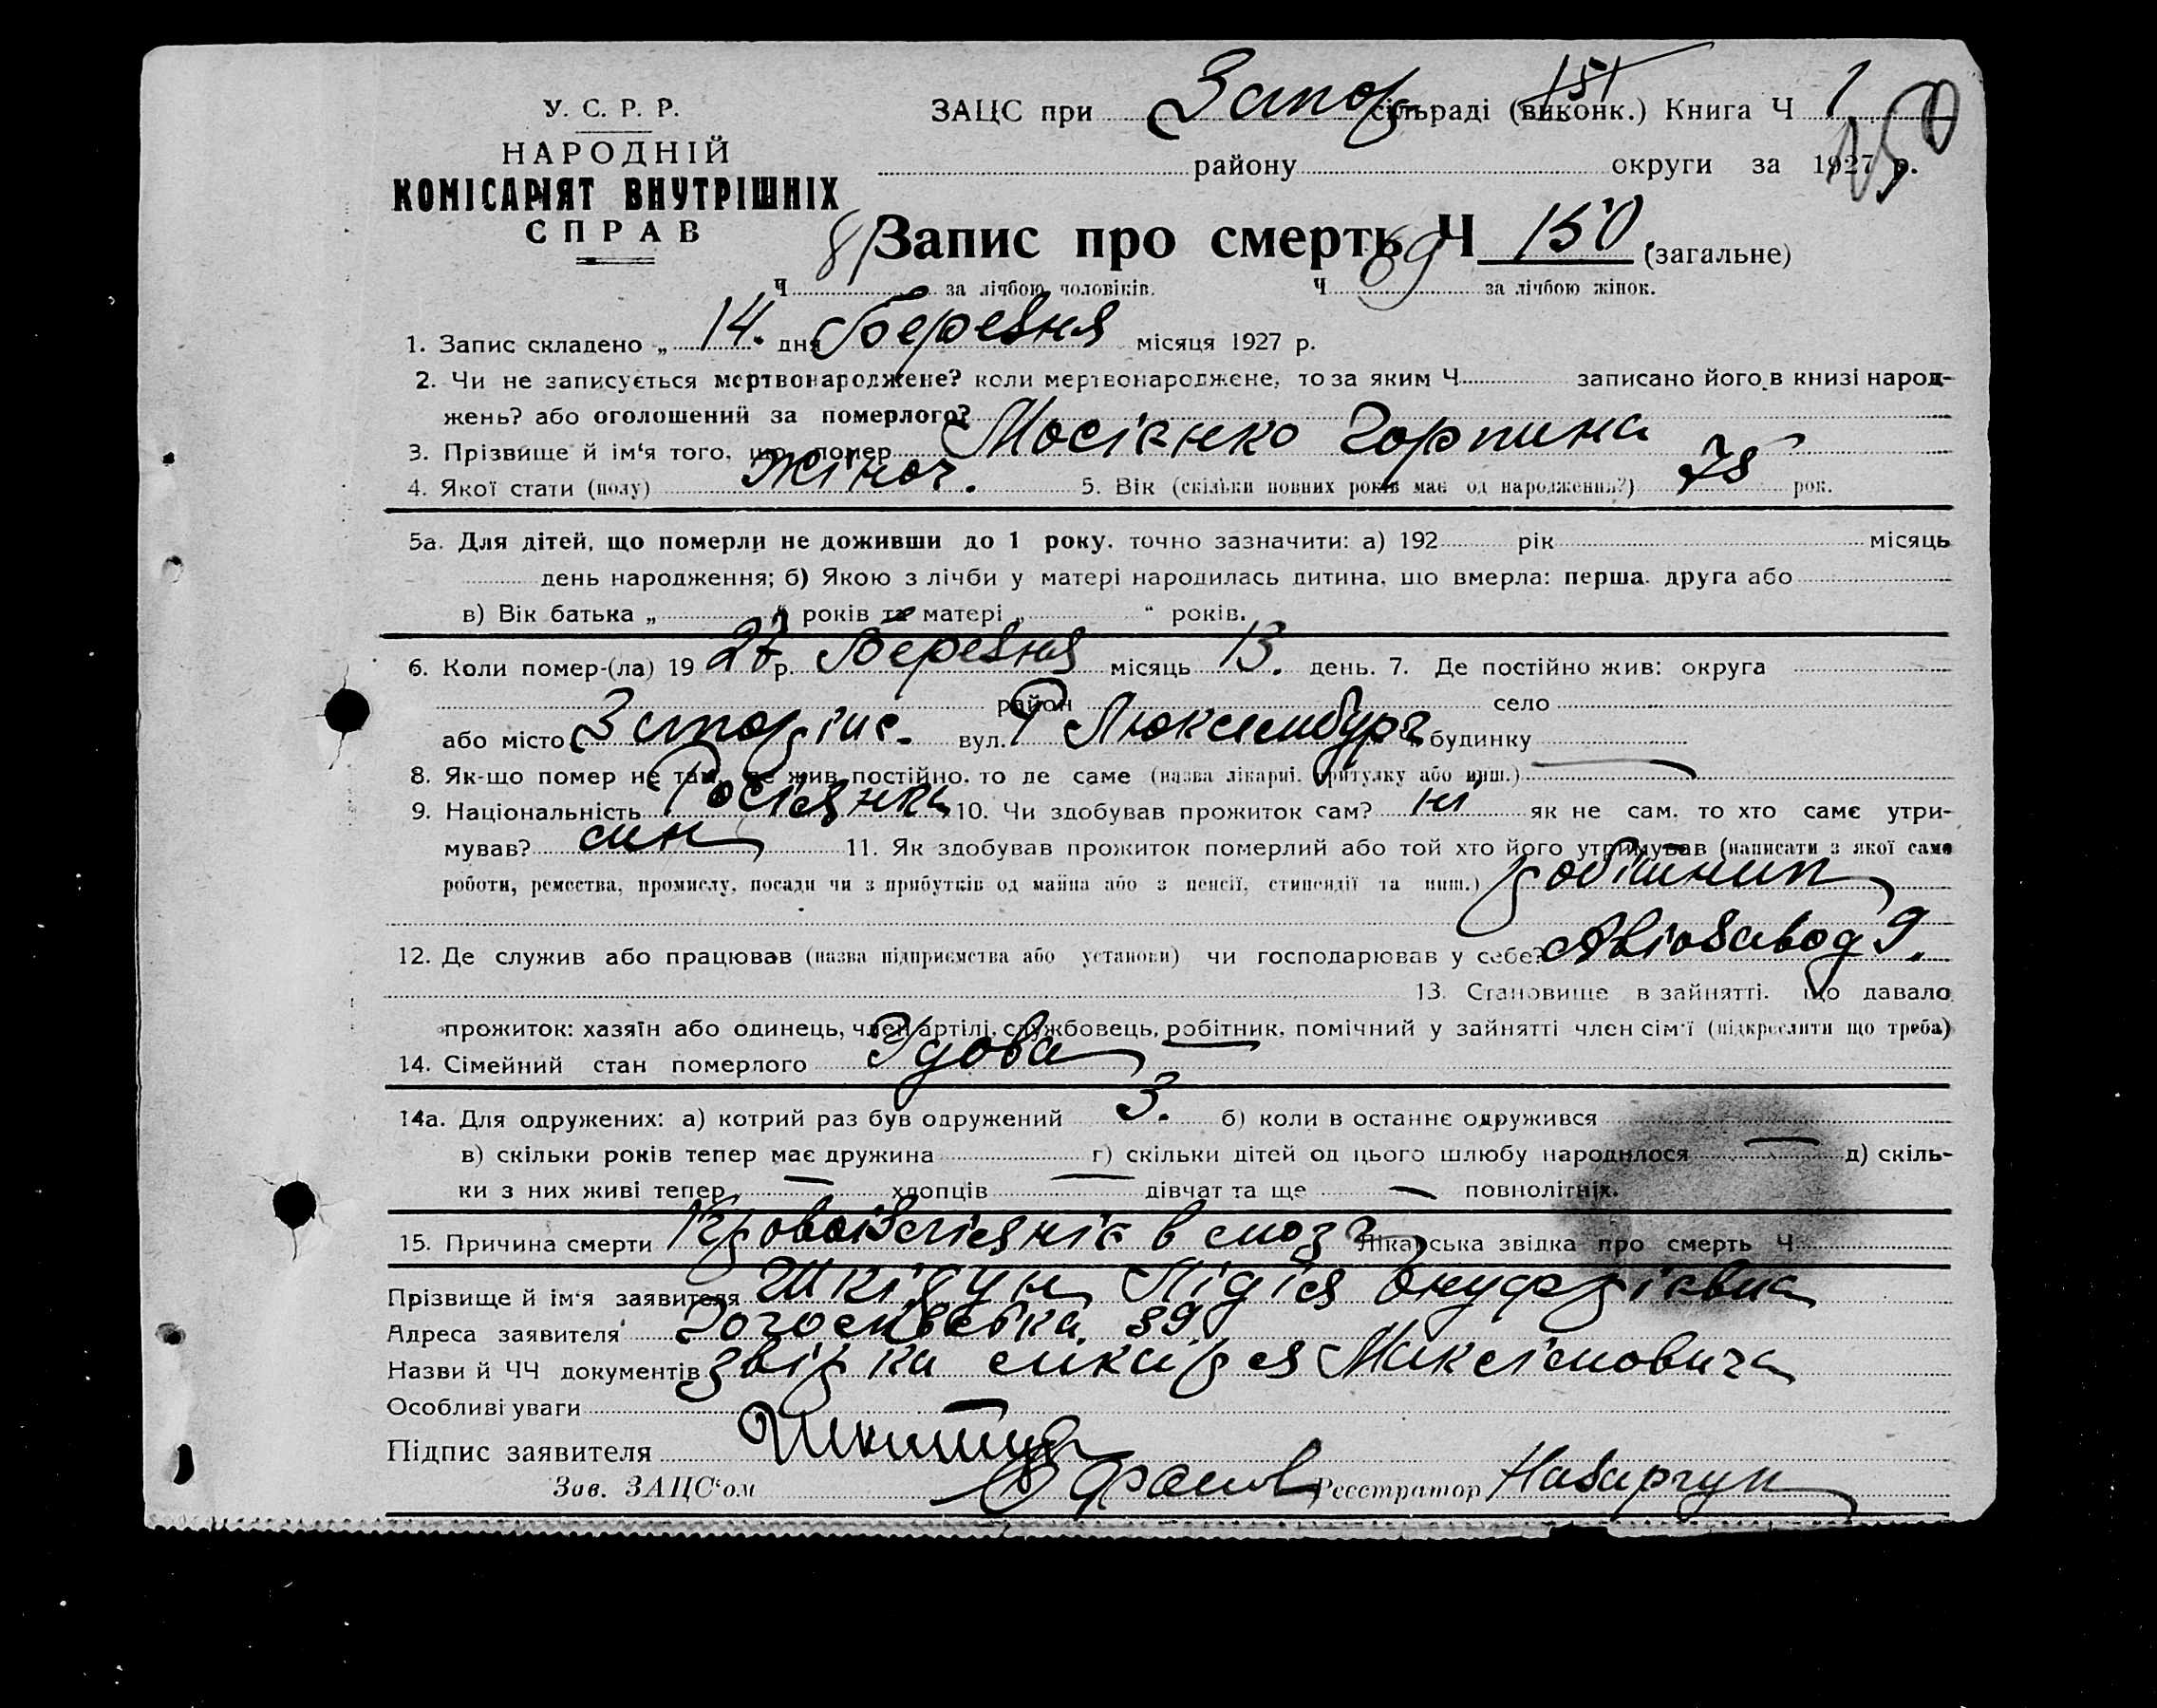 У. С. Р. Р.
НАРОДНІЙ
КОМІСАРІЯТ ВНУТРІШНІХ
СПРАВ
ЗАЦС при Запор сільраді (виконк.) Книга Ч 1
151
району округи за 1927 р.
150
Запис про смерть Ч 150 (загальне)
Ч 81 за лічбою чоловіків. Ч 69 за лічбою жінок.
1. Запис складено „ 14. дня Березня місяця 1927 р.
2. Чи не записується мертвонароджене? коли мертвонароджене, то за яким Ч записано його в книзі народ-
жень? або оголошений за померлого?
3. Прізвище й ім'я того, що помер Мосієнко Горпина
4. Якої стати (полу) жіноч. 5. Вік (скільки повних років має од народження?) 78 рок.
5а. Для дітей, що померли не доживши до 1 року, точно зазначити: а) 192 рік місяць
день народження; б) Якою з лічби у матері народилась дитина, що вмерла: перша. друга або
в) Вік батька „ “ років та матері „ “ років.
6. Коли помер-(ла) 1927 р. Березня місяць 13. день. 7. Де постійно жив: округа
район село
або місто Запоріжє. вул. Р Люксембург будинку
8. Як-що помер не там, де жив постійно, то де саме (назва лікарні, притулку або инш.)
9. Національність Росіянка 10. Чи здобував прожиток сам? ні як не сам, то хто саме утри-
мував? син 11. Як здобував прожиток померлий або той хто його утримував (написати з якої саме
роботи, ремества, промислу, посади чи з прибутків од майна або з пенсії, стипендії та инш.) робітник
12. Де служив або працював (назва підприємства або установи) чи господарював у себе? Авіозавод 9.
13. Становище в зайнятті, що давало
прожиток: хазяїн або одинець, член артілі, службовець, робітник, помічний у зайнятті член сім'ї (підкреслити що треба)
14. Сімейний стан померлого Удова
14а. Для одружених: а) котрий раз був одружений 3. б) коли в останнє одружився
в) скільки років тепер має дружина г) скільки дітей од цього шлюбу народилося — д) скіль-
ки з них живі тепер — хлопців — дівчат та ще — повнолітніх.
15. Причина смерти Кровоізліяніє в мозг Лікарська звідка про смерть Ч
Прізвище й ім'я заявителя Лідія Онуфріївна
Адреса заявителя 89
Назви й ЧЧ документів лікаря Максімовича
Особливі уваги
Підпис заявителя
Зав. ЗАЦС'ом Реєстратор